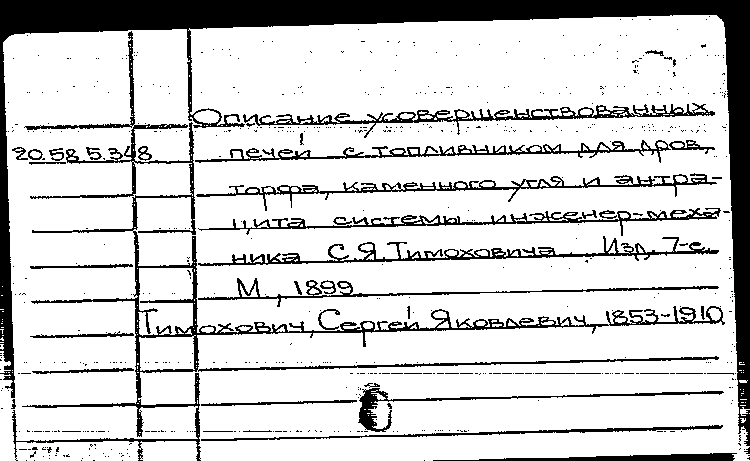 Описание усовершенствованных
20.58.5.348 печей с топливником для дров,
торфа, каменного угля и антра-
цита системы инженер-меха-
ника С.Я.Тимоховича Изд. 7-е.
М., 1899
Тимохович, Сергей Яковлевич, 1853-1910